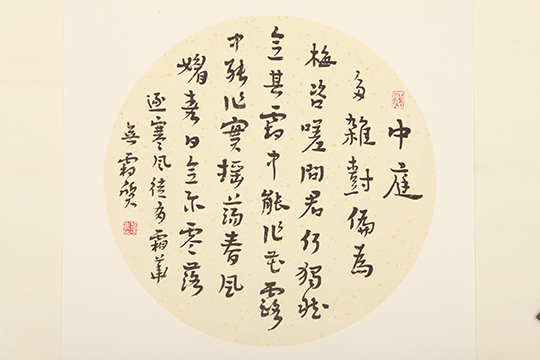 中庭
多雜樹偏為
梅咨嗟問君何獨然
念其霜中能作花露
中能作實搖蕩春風
媚春日念尔零落
逐寒風徒有霜華
無霜質